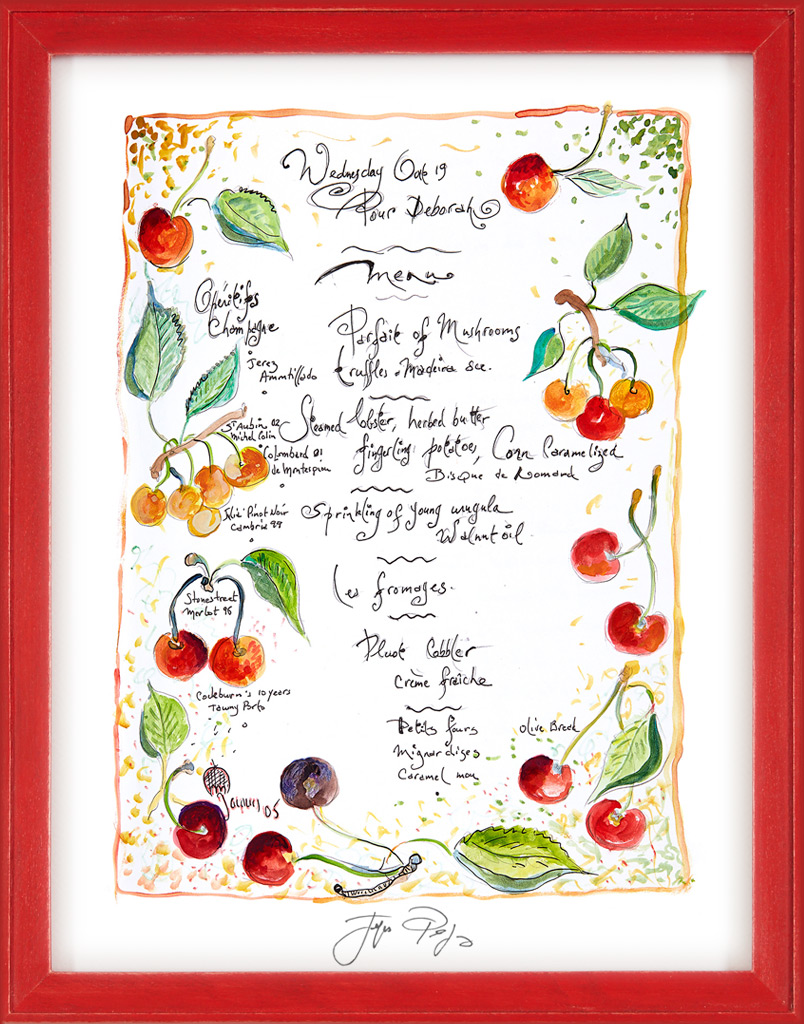 Wednesday Octo 19
Pour Deborah
Menu
Apéritifs
Champagne
Jerez
Ammtillado
St Aubin 02
Michel Colin
Colombard 01
de Montespun
Pinot Noir
Cambria 99
Stonestreet
Merlot 96
Cockburn's 10 years
Tawny Porto
Parfait of Mushrooms
truffles Madeira sce.
Steamed lobster, herbed butter
fingerling potatoe, Corn Caramelized
Bisque de Homard
Sprinkling of young arugula
Walnut oil.
Les fromages.
Pluot Cobbler
Crème fraîche
Petits fours
Mignardises
Caramel mou
Olive Bread
05